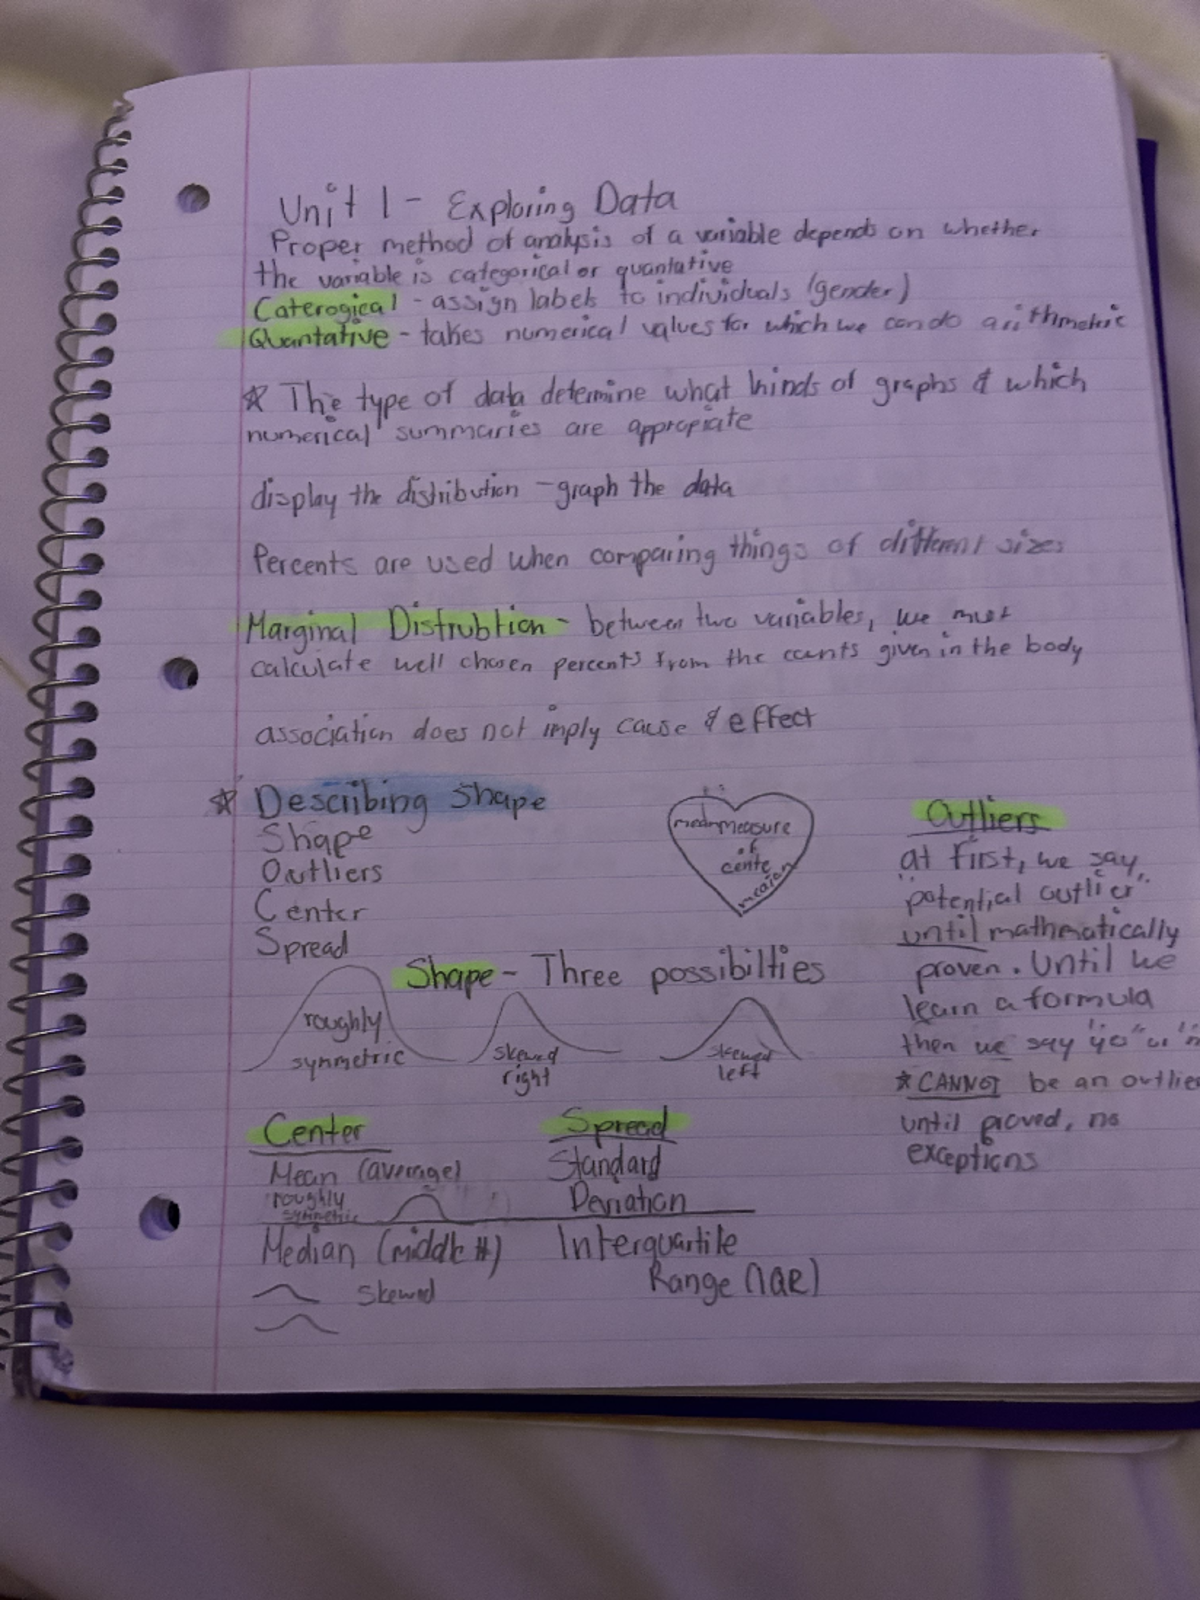 Unit 1 - Exploring Data
Proper method of analysis of a variable depends on whether
the variable is categorical or quantative
Caterogical - assign labels to individuals (gender)
Quantative - takes numerical values for which we can do arithmetic
☆ The type of data determine what kinds of graphs & which
numerical summaries are appropiate
display the distribution - graph the data
Percents are used when comparing things of different sizes
Marginal Distrubtion - between two variables, we must
calculate well chosen percents from the counts given in the body
association does not imply cause & effect
☆ Describing Shape
Shape
Outliers
Center
Spread
mean measure
of
cente
median
Outliers
at first, we say
"potential outlier"
until mathematically
proven. Until we
learn a formula
then we say "yes" or "n
☆ CANNOT be an outlie
until proved, no
exceptions
Shape - Three possibilties
roughly
symmetric
skewed
right
skewed
left
Center
Mean (average)
roughly
symmetric
Median (middle #)
skewed
Spread
Standard
Deviation
Interquartile
Range (IQR)